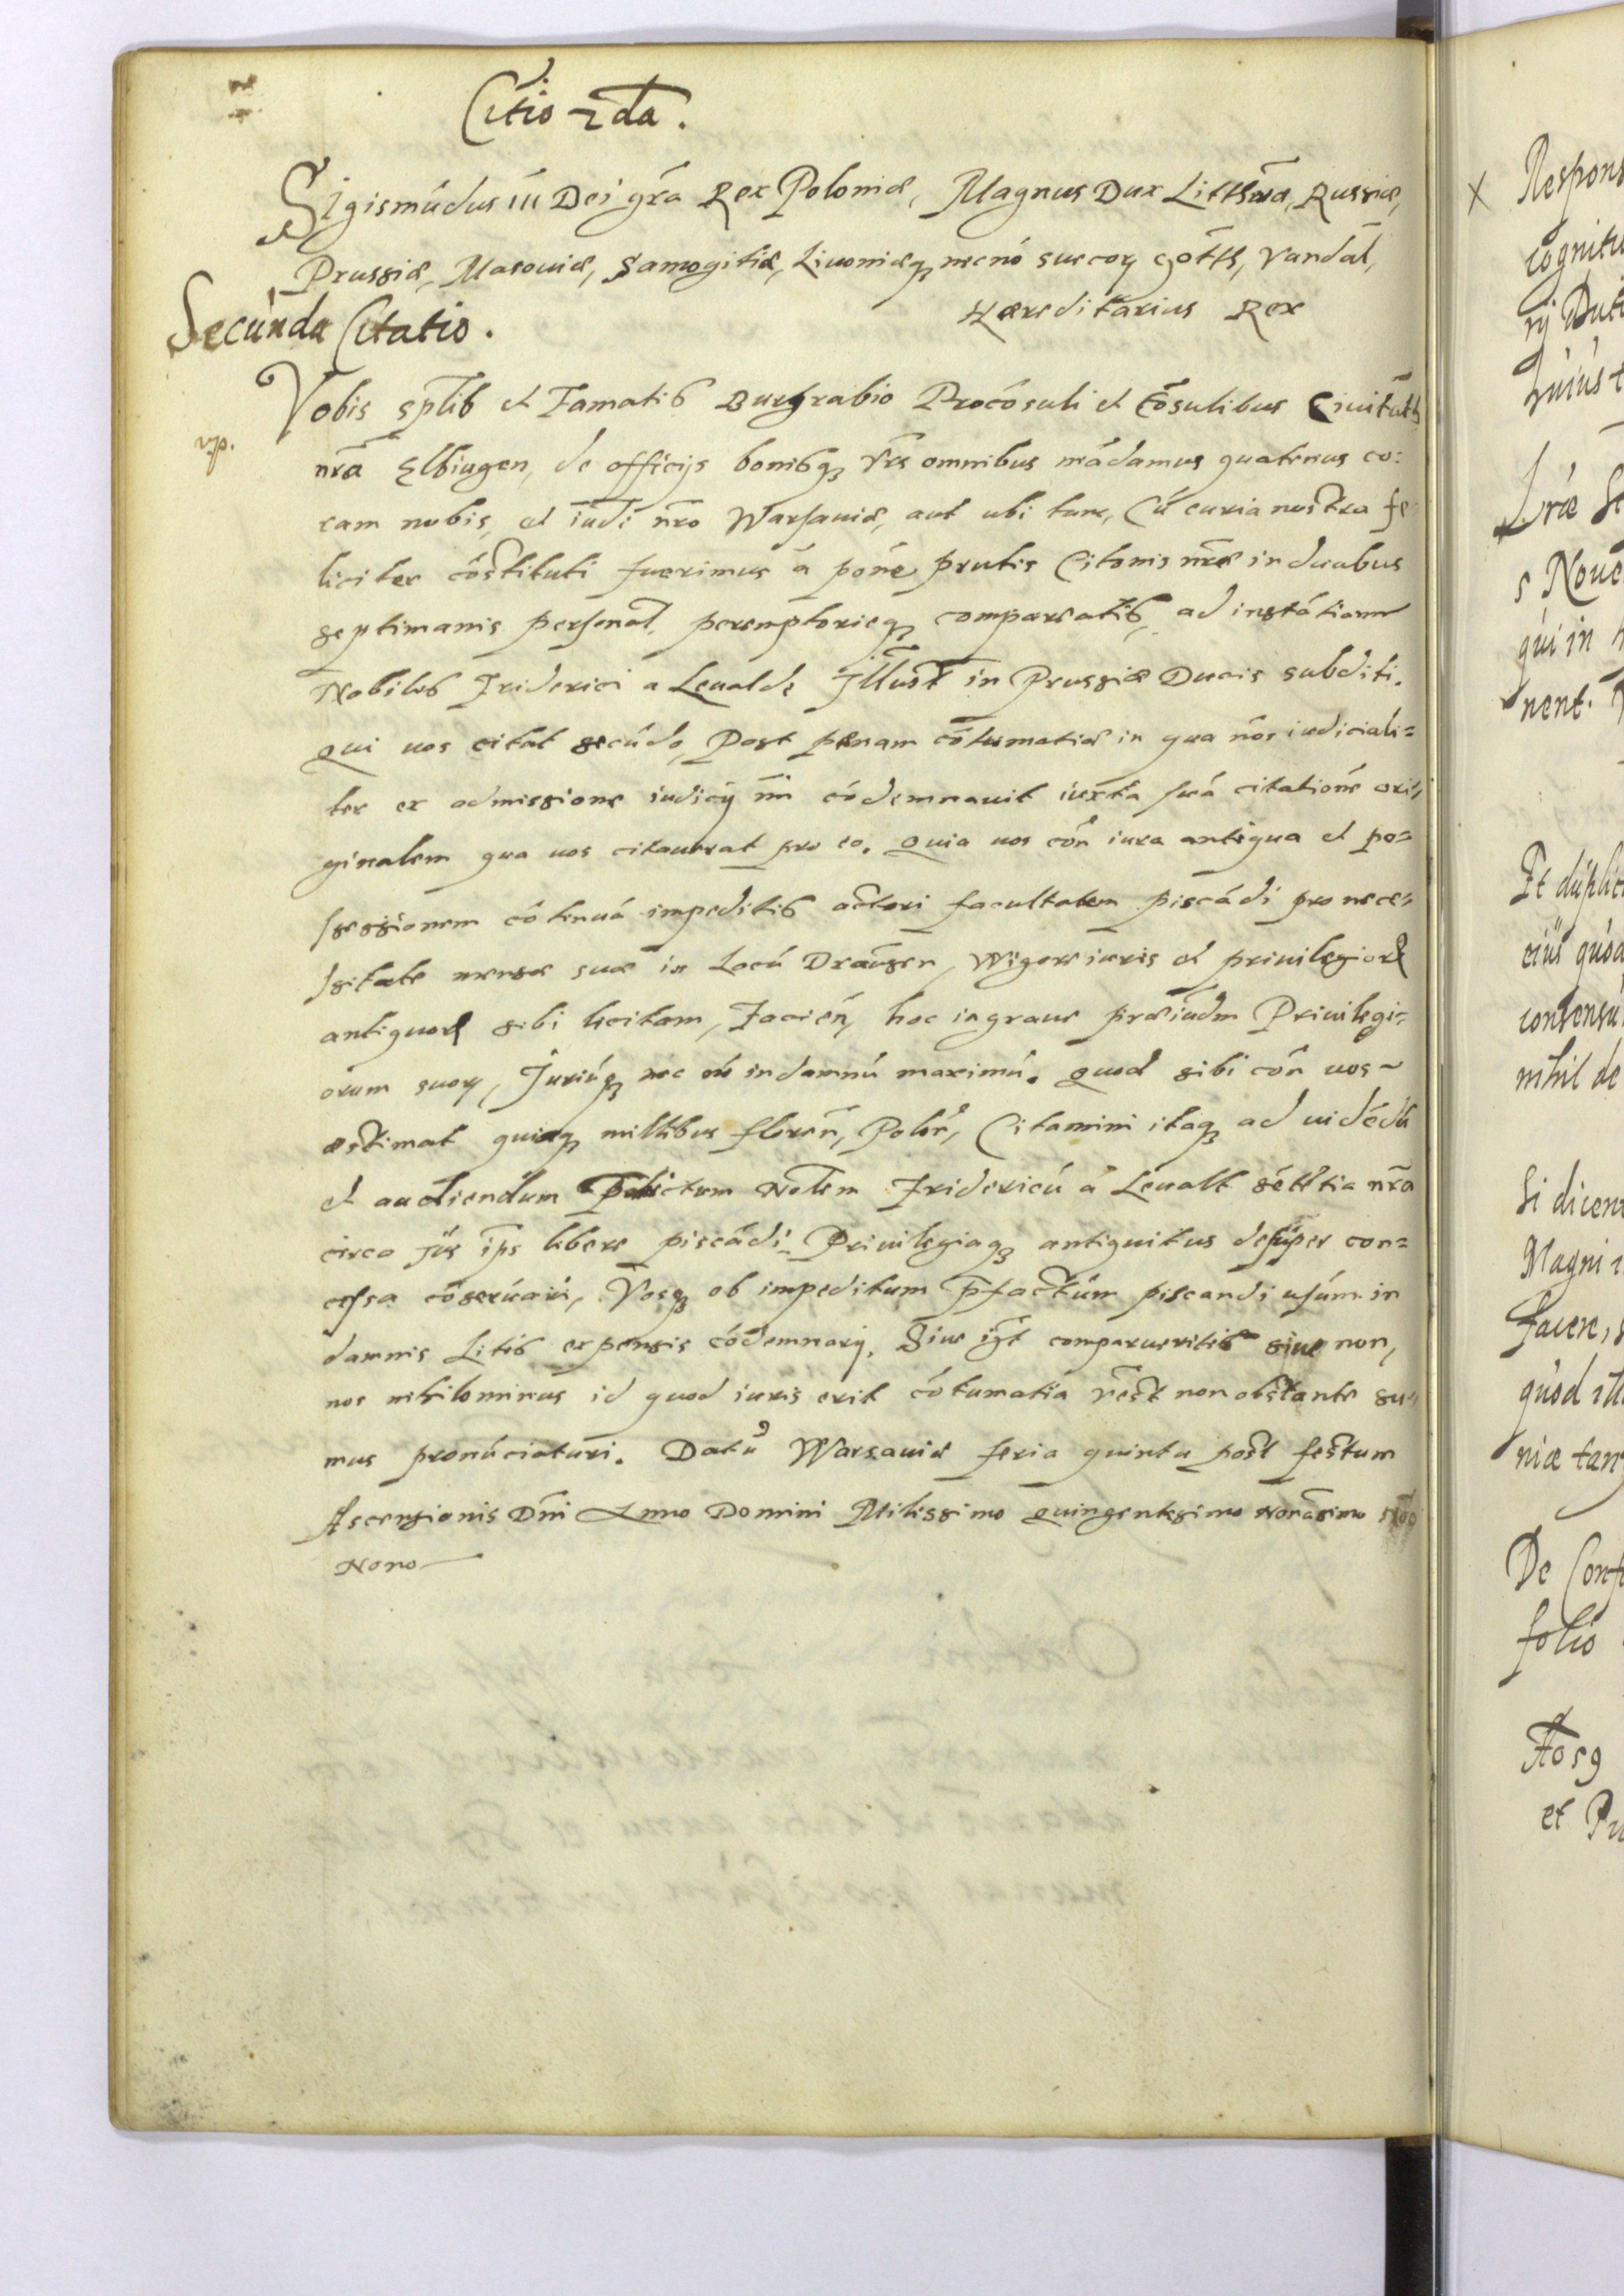 Citio 2da.
Sigismūdus III Dei grā Rex Poloniæ, Magnus Dux Litthwā, Russiæ,
Prussiæ, Masouiæ, Samogitiæ, Liuoniæq₃ necnō suecoꝝ Gotth, Vandal,
Hæreditarius Rex
Secunda Citatio.
Vobis sp̄lib et Famatis Burgrabio Procōsuli et Cōsulibus Ciuitatis
nrā Elbingen, de officijs bonisq₃ vr̄is omnibus mādamus quatenus co:
ram nobis, et iudi nr̄o Warsauiæ, aut ubi tunc, Cū curia nostra fe
liciter cōstituti fuerimus ā pōne prntis Citonis nr̄æ in duabus
septimanis personal, peremptorieq₃ compareatis, ad instātiam
Nobilis Friderici a Leualde Illustr in Prussiæ Ducis subditi.
Qui uos citat secūdo, Post pœnam cōtumatiæ in qua nos iudiciali=
ter ex admissione iudicij nri cōdemnauit iuxta suā citationē ori=
ginalem qua uos citauerat pro eo. Quia uos con iura antiqua et po=
ssessionem cōtinuā impeditis actori facultatem piscādi pro nece=
ssitate mensæ suæ in Lacū Drausen, Wigore iuris et priuilegioꝝ
antiquoꝝ sibi licitam, Facien, hoc in graue præiudm Priuilegi=
orum suoꝝ, Juriūq₃ nec nō in damnū maximū. Quod sibi con uos
æstimat quinq₃ millibus floren, Polon, Citamini itaq₃ ad uidēdū
et audiendum Nolem Fridericū a Leualt sētētia nrā
circa Jus ips libere piscādi Priuilegiaq₃ antiquitus desuper con=
cessa cōseruari, Vosq₃ ob impeditum p̄factum piscandi usum in
damnis Litis expensis cōdemnari. Siue igt comparueritis siue non,
nos nihilominus id quod iuris erit cōtumatia vest non obstante su=
mus pronūciaturi. Datū Warsauiæ feria quinta post festum
Ascensionis Dn̄i Anno Domini Milissimo Quingentesimo Nonāsimo
Nono